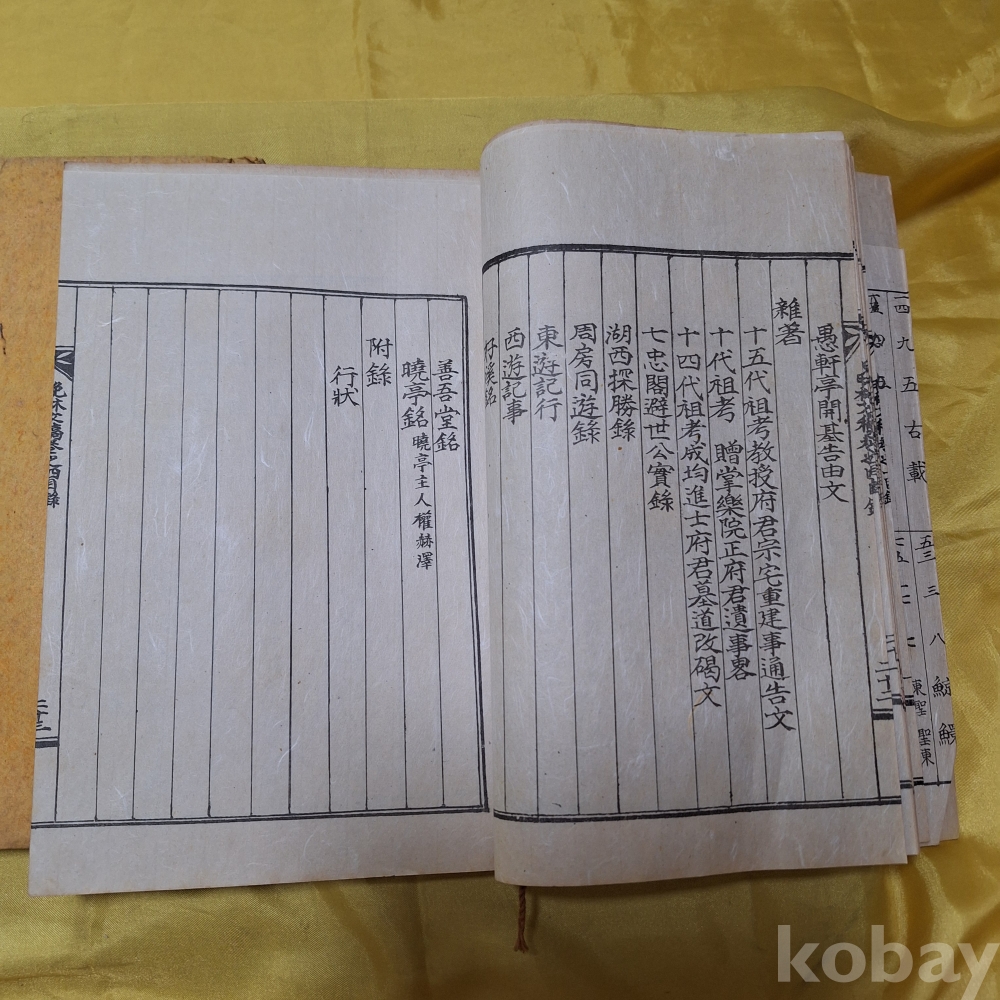 愚軒亭開基告由文
雜著
十五代祖考教授府君宗宅重建事通告文
十代祖考 贈掌樂院正府君遺事畧
十四代祖考成均進士府君墓道改碣文
七忠閣避世公實錄
湖西探勝錄
周房同遊錄
東遊記行
西遊記事
善吾堂銘
曉亭銘 曉亭主人權赫澤
附錄
行狀
二十三
二十二
一四九五右載
kobay